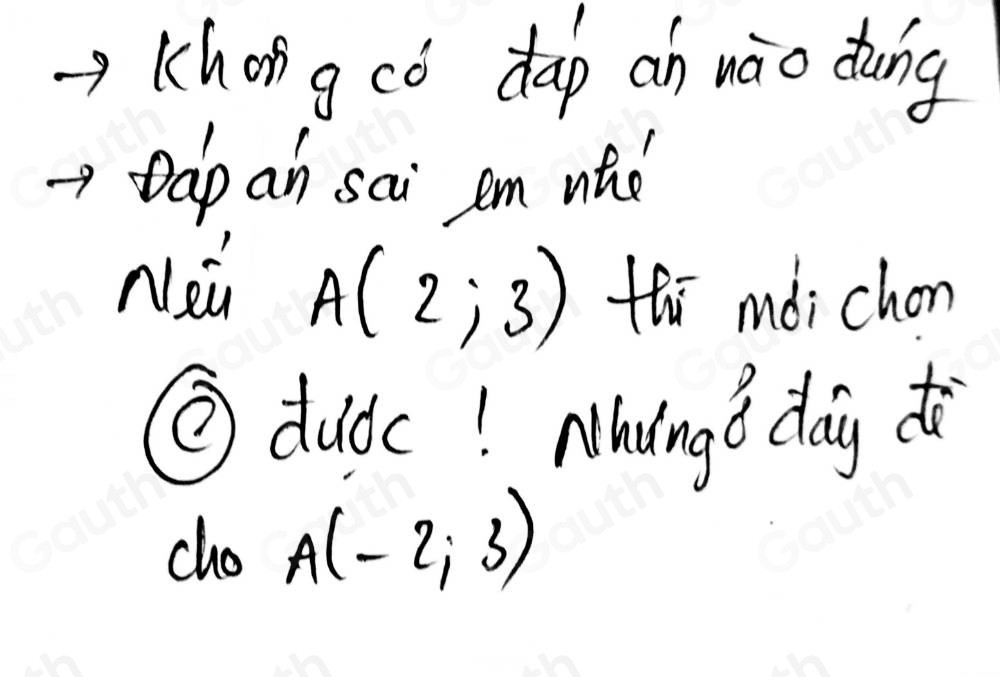 → Không có đáp án nào đúng
→ Đáp án sai em nhé
Nếu A(2;3) thì mới chọn
ⓒ được ! Nhưng ở đây đề
cho A(-2;3)